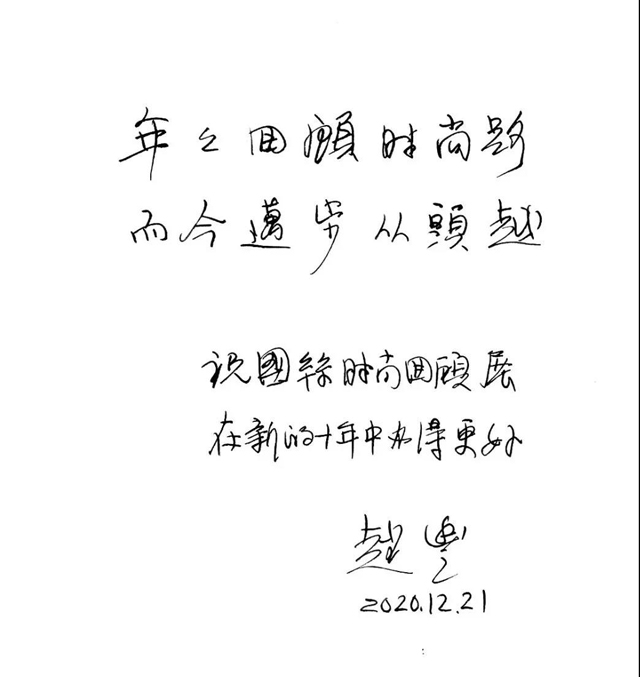 年年回顧时尚路
而今邁步从頭越
祝國絲时尚回顧展
在新的十年中办得更好
趙豐
2020.12.21